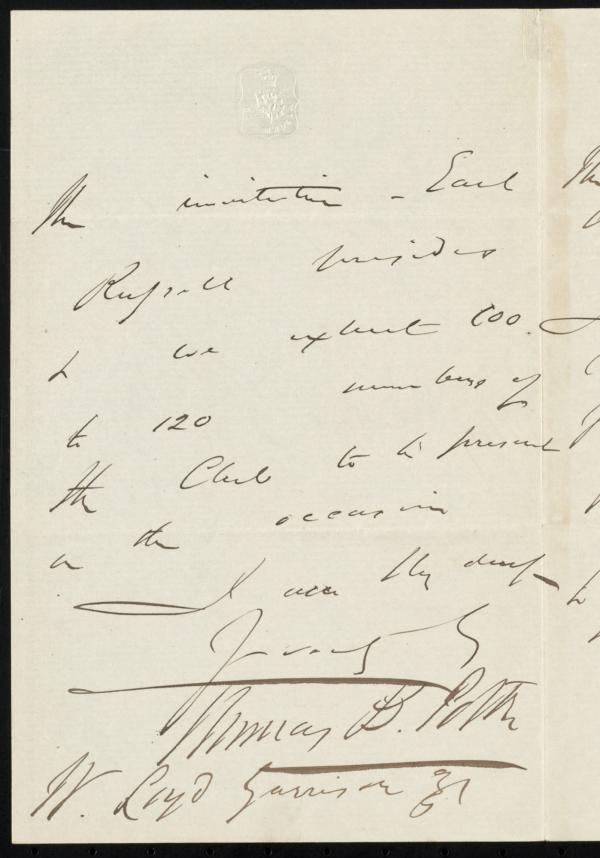 the invitation - Earl
Russell presides
& we expect 100
to 120 members of
the Club to be present
on the occasion
I am My dear
Yours
Thomas B. Potter
W. Loyd Garrison Esq